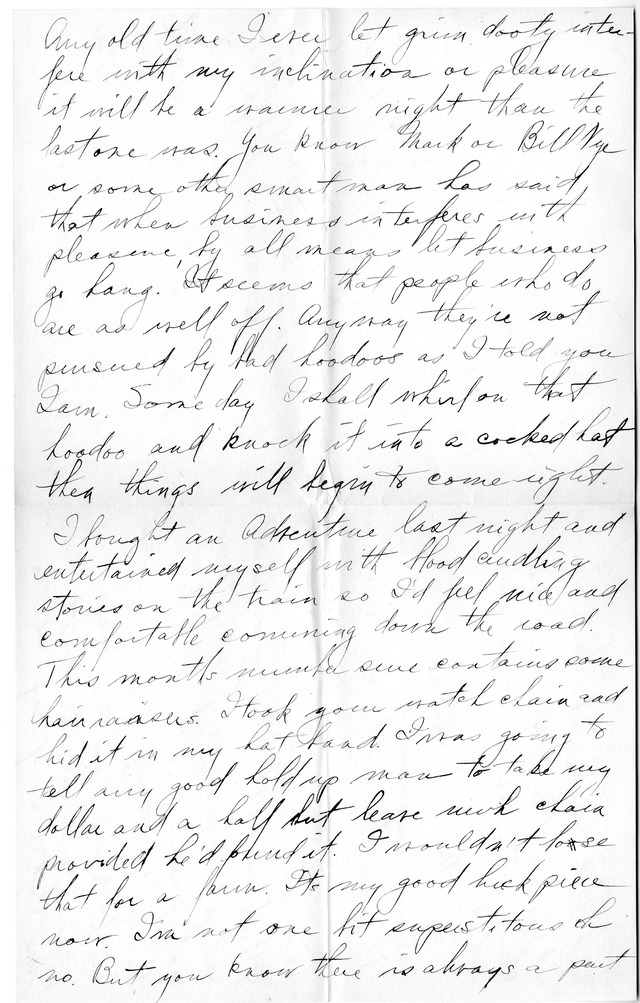 Any old time I ever let grim dooty inter-
fere with my inclination or pleasure
it will be a warmer night than the
last one was. You know Mark or Bill Nye
or some other smart man has said
that when business interferes with
pleasure, by all means let business
go hang. It seems that people who do
are as well off. Anyway they're not
pursued by bad hoodoos as I told you
I am. Some day I shall whirl on that
hoodoo and knock it into a cocked hat
then things will begin to come right.
I bought an Adventure last night and
entertained myself with blood curdling
stories on the train so I'd feel nice and
comfortable comming down the road.
This months number sure contains some
hair raisers. I took your watch chain and
hid it in my hat band. I was going to
tell any good hold up man to take my
dollar and a half but leave chain
provided he'd found it. I wouldn't loose
that for a farm. Its my good luck piece
now. I'm not one bit superstitous oh
no. But you know there is always a